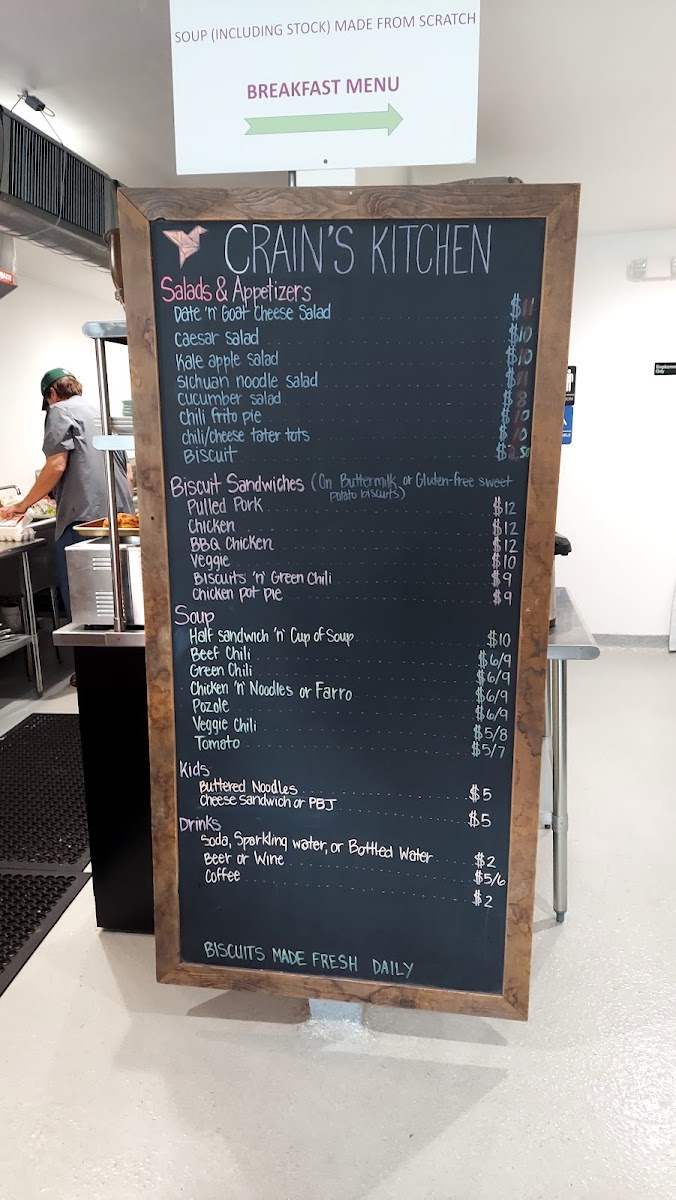 SOUP (INCLUDING STOCK) MADE FROM SCRATCH
BREAKFAST MENU
CRAIN'S KITCHEN
Salads & Appetizers
Date 'n' Goat Cheese Salad $11
Caesar salad $10
Kale apple salad $10
Sichuan noodle salad $11
Cucumber salad $8
Chili frito pie $10
Chili/cheese tater tots $10
Biscuit $2.50
Biscuit Sandwiches (On Buttermilk or Gluten-free sweet
potato biscuits)
Pulled Pork $12
Chicken $12
BBQ Chicken $12
Veggie $10
Biscuits 'n' Green Chili $9
Chicken pot pie $9
Soup
Half sandwich 'n' Cup of Soup $10
Beef Chili $6/9
Green Chili $6/9
Chicken 'n' Noodles or Farro $6/9
Pozole $6/9
Veggie Chili $5/8
Tomato $5/7
Kids
Buttered Noodles $5
Cheese sandwich or PBJ $5
Drinks
Soda, Sparkling water, or Bottled Water $2
Beer or Wine $5/6
Coffee $2
BISCUITS MADE FRESH DAILY
Employees
Only